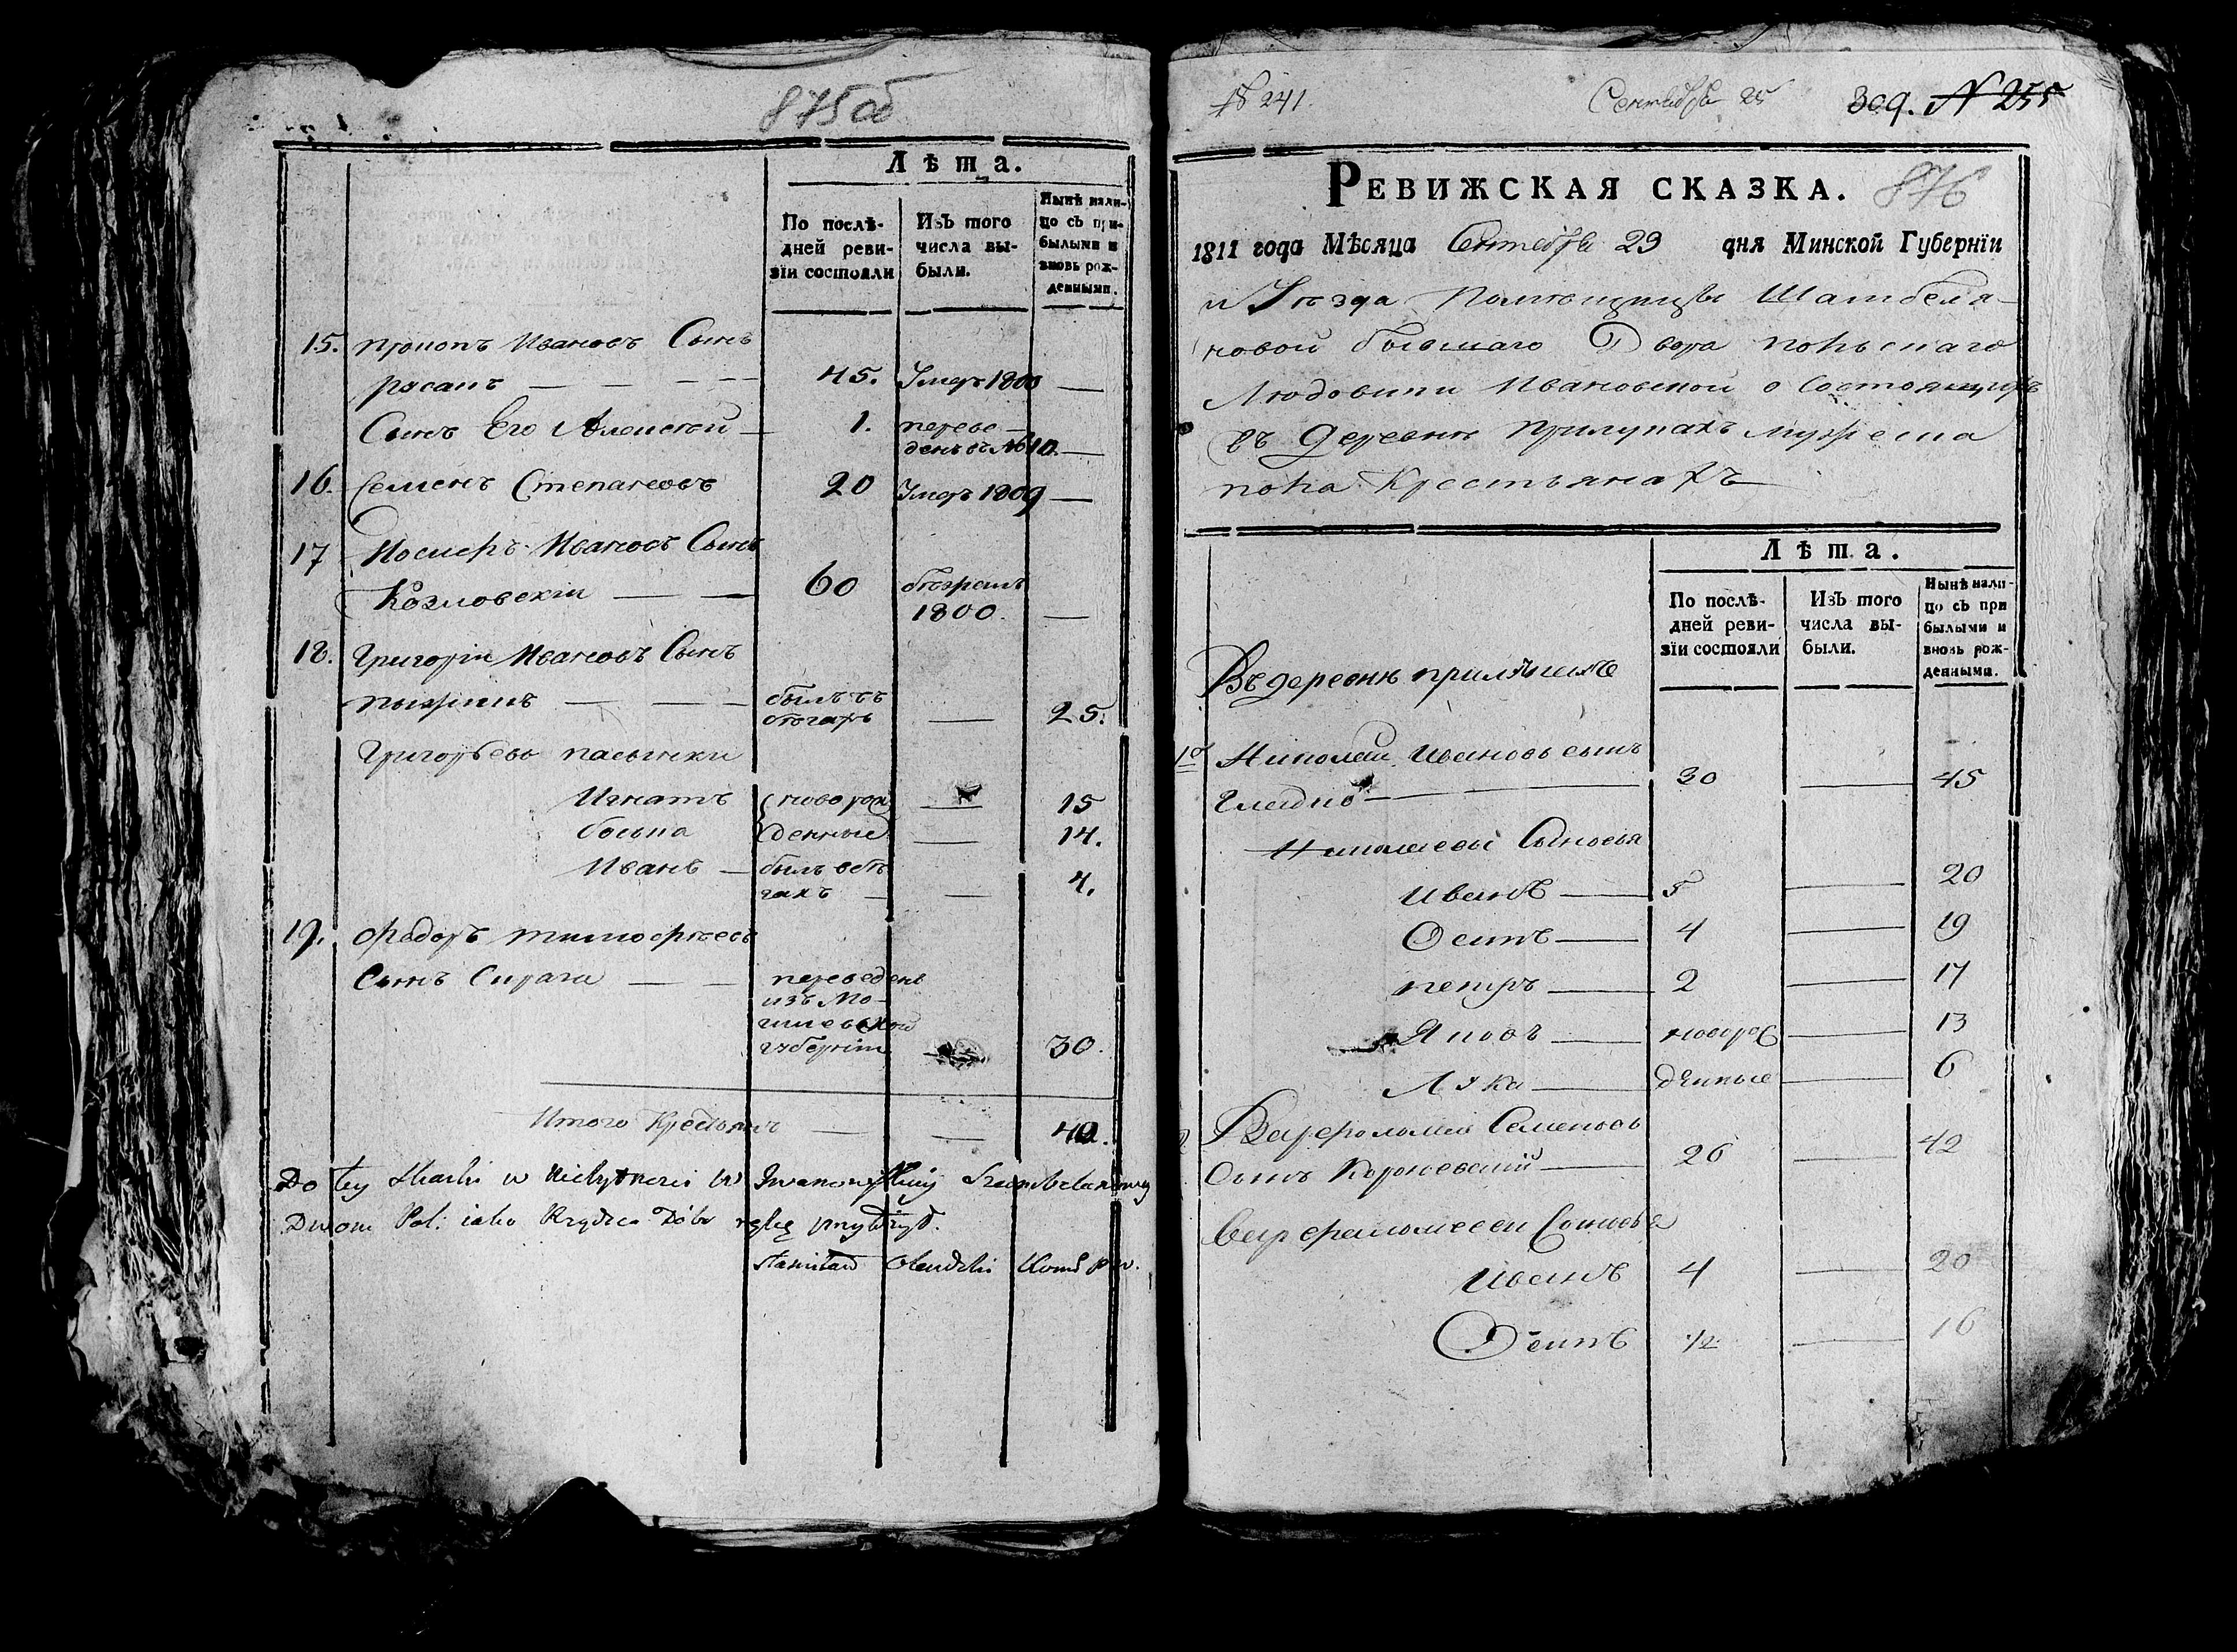 875об
Лѣта.
По послѣ-
дней реви-
зіи состояли
Изъ того
числа вы-
были.
Нынѣ нали-
цо съ при-
былыми и
вновь рож-
денными.
15. Прокопъ Ивановъ Сынъ
45. Умеръ 1800 —
Сынъ Его Алексѣй — 1. переве-
денъ въ № 10. —
16. Семенъ Степановъ 20 Умеръ 1809 —
17 Иосифъ Ивановъ Сынъ
Козловскій — — 60 бѣжалъ
1800. —
18. Григорій Ивановъ Сынъ
— — былъ въ
бѣгахъ — 25.
Григорьевы пасынки
Игнатъ новорож — 15
денные — 14.
Иванъ — былъ вбѣ
гахъ — 4.
19. Федоръ Тимофѣевъ
Сынъ Сирага — — переведенъ
изъ Мо-
гилевской
губерніи — 30.
Итого Крестьянъ — —
Do tey Skaski w
Dworu Pol: iako Rządca Dóbr rękę
№ 241. Сентября 25 Зод. N 255
Ревижская сказка. 876
1811 года Мѣсяца Сентября 29 дня Минской Губерніи
и Уѣзда Помѣщицы Шамбеля-
новой бывшаго Двора польскаго
Людовики Ивановской о Состоящихъ
въ деревнѣ Прилукахъ мужеска
пола Крестьянахъ
Лѣта.
По послѣ-
дней реви-
зіи состояли
Изъ того
числа вы-
были.
Нынѣ нали-
цо съ при
былыми и
вновь рож-
денными.
Въ деревнѣ
1й Николай Ивановъ сынъ
30 — 45
Николаевы Сыновья
Иванъ — 5 — 20
Осипъ — 4 — 19
Петръ — 2 — 17
Яковъ — новорож — 13
Лука — денные — 6
Варфоломей Семеновъ
Сынъ — 26 — 42
Варфоломеевы Сыновья
Иванъ 4 — 20
Осипъ 1/2 — 16